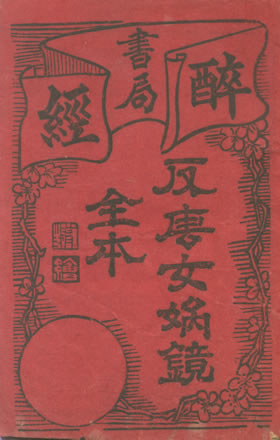 醉經
書局
反唐女媧鏡
全本